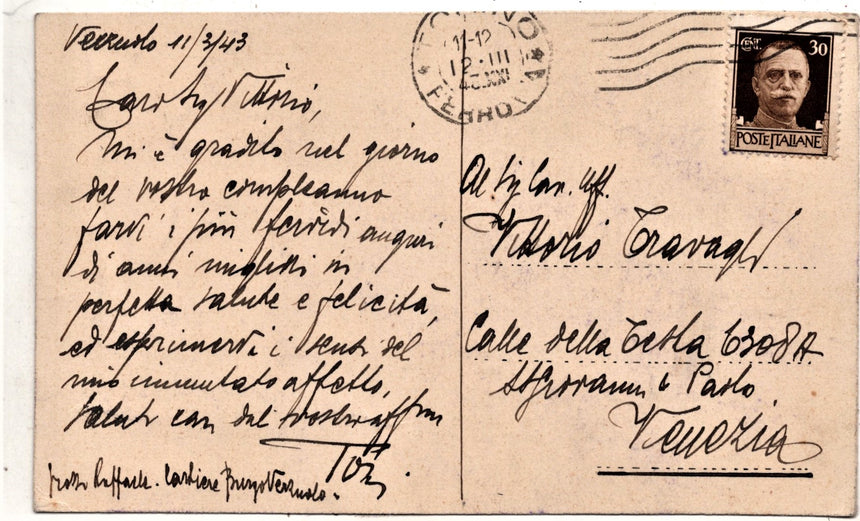 Verzuolo 11/3/43
Caro Sig Vittorio,
Mi è gradito nel giorno
del vostro compleanno
farvi i più fervidi auguri
di anni migliori in
perfetta salute e felicità,
ed esprimervi i sensi del
mio immutato affetto.
Saluti cari dal vostro affmo
Raffaele. Cartiere Burgo Verzuolo.
11-12
12·III
43.XXI
FERROV
CENT. 30
POSTE ITALIANE
Al Sig Cav. Uff.
Vittorio Travagli
Calle della Testa 6308A
SS Giovanni e Paolo
Venezia